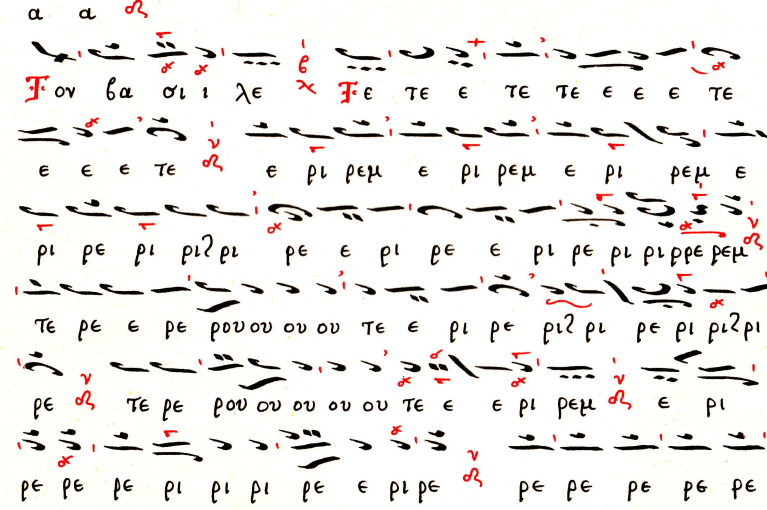 α α
Τον βα σι ι λε Τε τε ε τε τε ε ε ε τε
ε ε ε τε ε ρι ρεμ ε ρι ρεμ ε ρι ρεμ ε
ρι ρε ρι ρι ρι ρε ε ρι ρε ε ρι ρε ρι ρι ρρε ρεμ
τε ρε ε ρε ρου ου ου ου τε ε ρι ρε ρι ρι ρε ρι ρι ρι
ρε τε ρε ρου ου ου ου ου τε ε ε ρι ρεμ ε ρι
ρε ρε ρε ρι ρι ρι ρε ε ρι ρε ρε ρε ρε ρε ρε